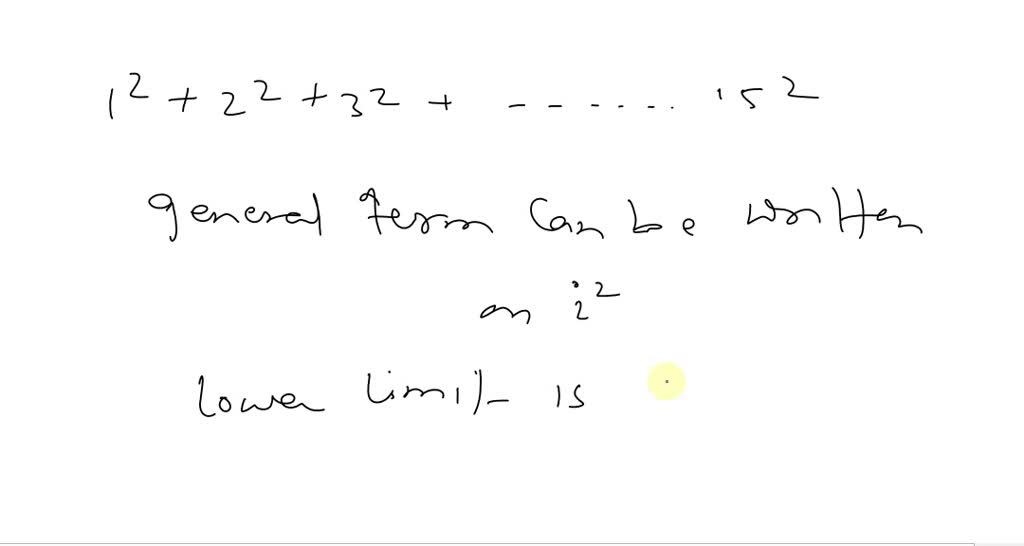 1² + 2² + 3² + - - - - - .. 15²
general term can be written
as i²
lower limit is